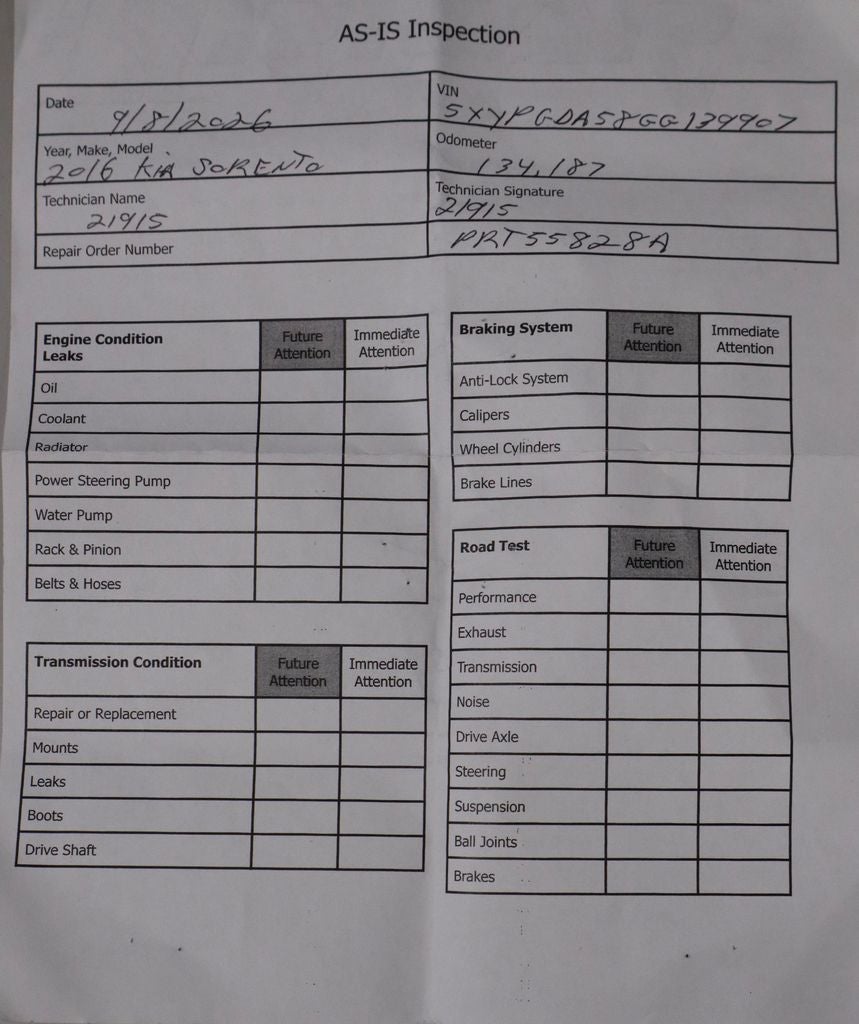 AS-IS Inspection
Date
9/8/2026
VIN
5XYPGDA58GG139907
Year, Make, Model
2016 KIA SORENTO
Odometer
134,187
Technician Name
21915
Technician Signature
21915
Repair Order Number
PRT55828A
Engine Condition Leaks Future Attention Immediate Attention
Oil
Coolant
Radiator
Power Steering Pump
Water Pump
Rack & Pinion
Belts & Hoses
Transmission Condition Future Attention Immediate Attention
Repair or Replacement
Mounts
Leaks
Boots
Drive Shaft
Braking System Future Attention Immediate Attention
Anti-Lock System
Calipers
Wheel Cylinders
Brake Lines
Road Test Future Attention Immediate Attention
Performance
Exhaust
Transmission
Noise
Drive Axle
Steering
Suspension
Ball Joints
Brakes